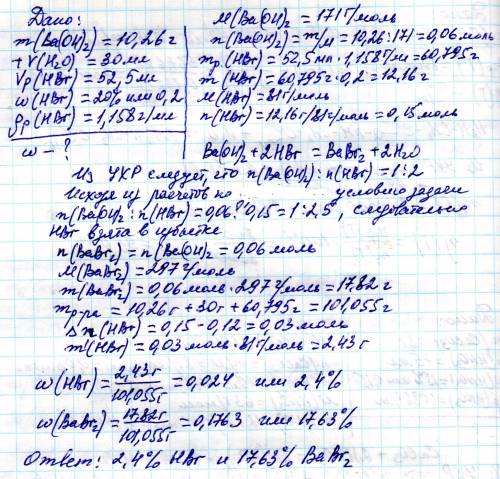 Дано:
m(Ba(OH)₂) = 10,26 г
+V(H₂O) = 30 мл
Vр(HBr) = 52,5 мл
ω(HBr) = 20% или 0,2
ρр(HBr) = 1,158 г/мл
ω - ?
M(Ba(OH)₂ = 171 г/моль
n(Ba(OH)₂) = m/M = 10,26 : 171 = 0,06 моль
mр(HBr) = 52,5 мл · 1,158 г/мл = 60,795 г
m(HBr) = 60,795г · 0,2 = 12,16 г
M(HBr) = 81 г/моль
n(HBr) = 12,16 г/81 г/моль = 0,15 моль
Ba(OH)₂ + 2HBr = BaBr₂ + 2H₂O
Из УХР следует, что n(Ba(OH)₂) : n(HBr) = 1:2
Исходя из расчеть по ........ условию задачи
n(Ba(OH)₂ : n(HBr) = 0,06 : 0,15 = 1:2,5, следовательно
HBr взята в избытке
n(BaBr₂) = n(Ba(OH)₂ = 0,06 моль
M(BaBr₂) = 297 г/моль
m(BaBr₂) = 0,06 моль · 297 г/моль = 17,82 г
mр-ра = 10,26 г + 30 г + 60,795 г = 101,055 г
Δn(HBr) = 0,15 - 0,12 = 0,03 моль
m'(HBr) = 0,03 моль · 81 г/моль = 2,43 г
ω(HBr) = 2,43 г/101,055 г = 0,024 или 2,4%
ω(BaBr₂) = 17,82 г/101,055 г = 0,1763 или 17,63%
Ответ: 2,4% HBr и 17,63% BaBr₂